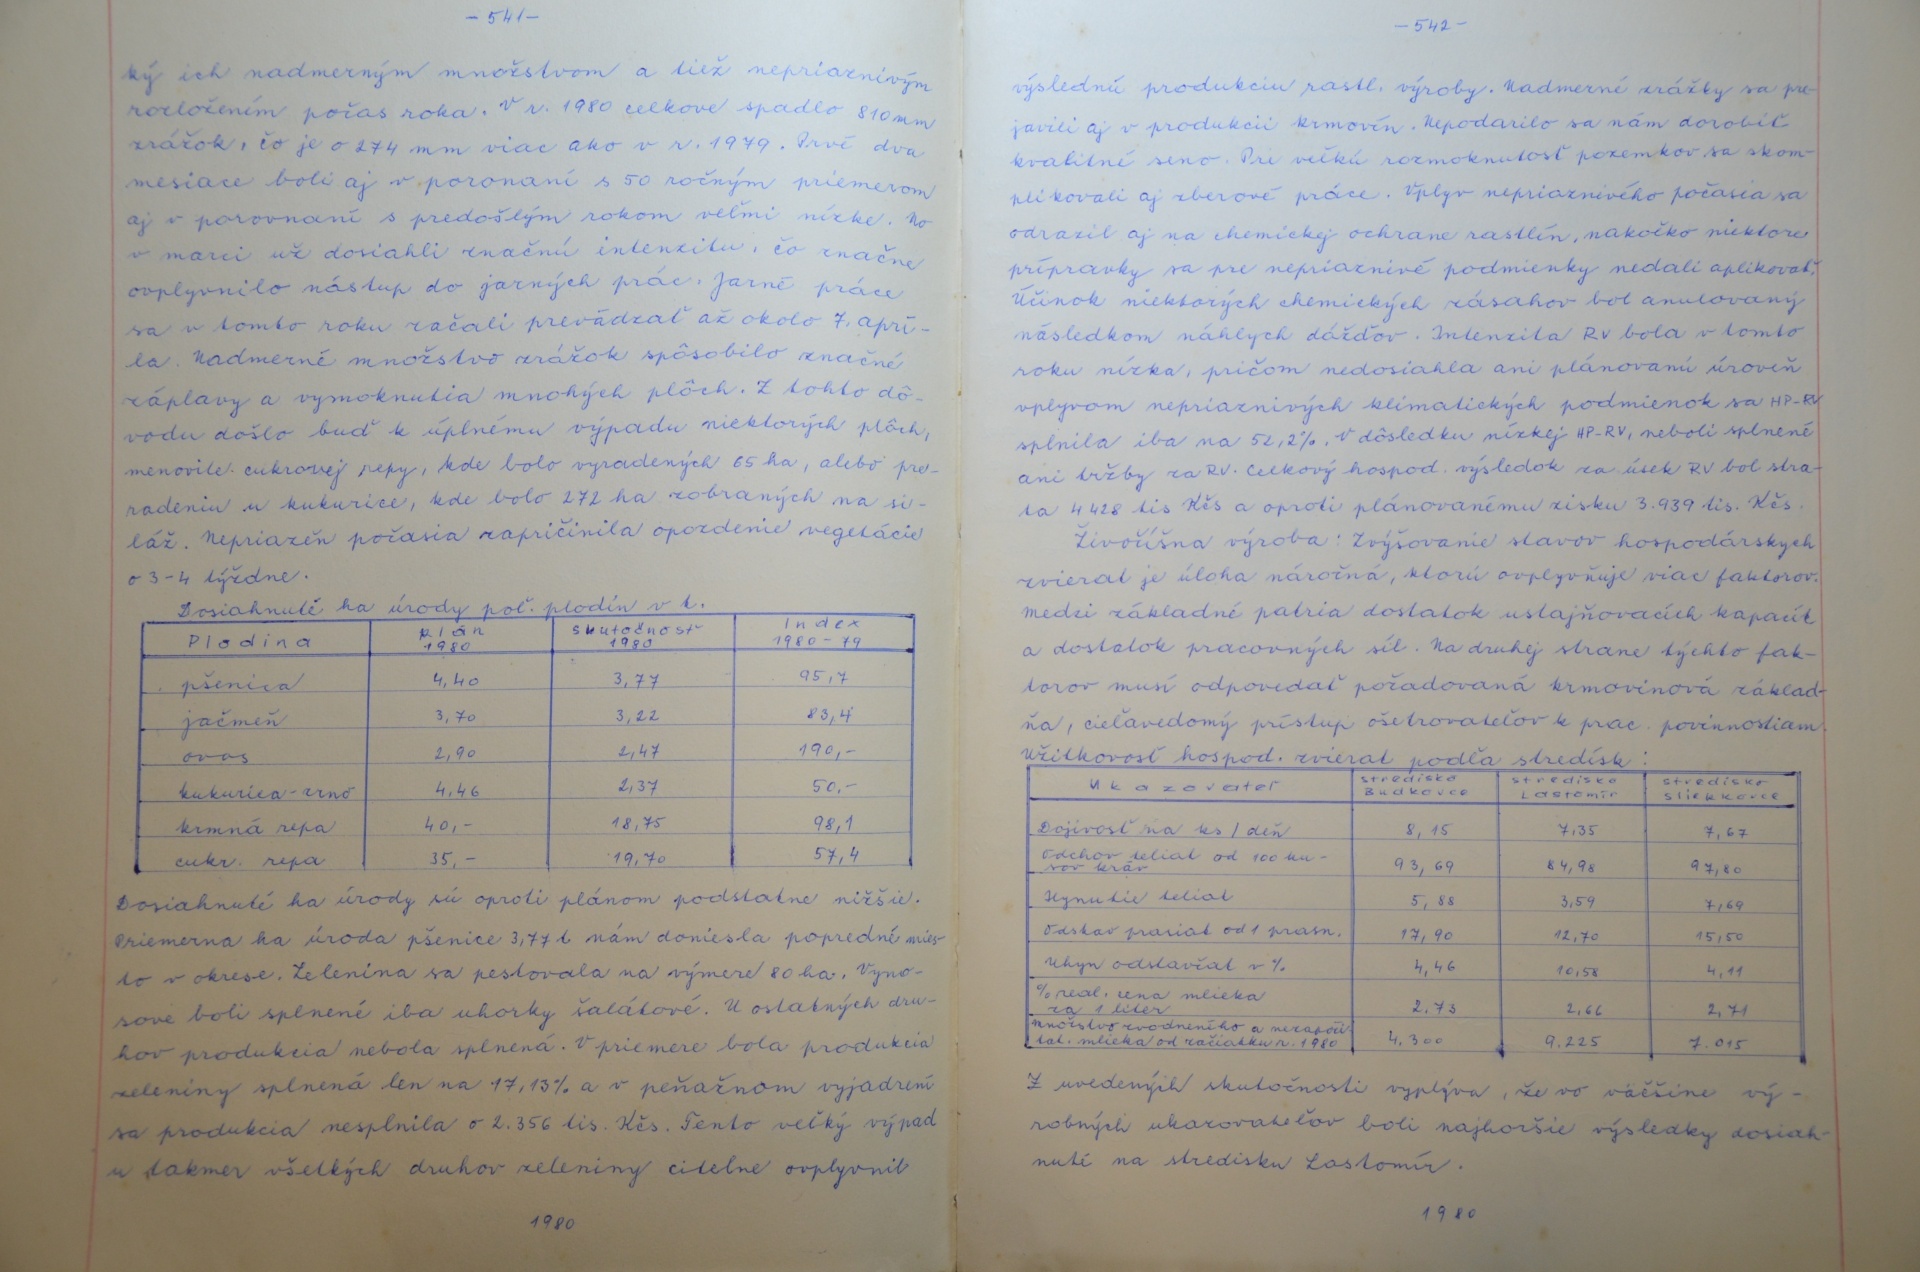 - 541 -
ký ich nadmerným množstvom a tiež nepriaznivým
rozložením počas roka. V r. 1980 celkove spadlo 810 mm
zrážok, čo je o 274 mm viac ako v r. 1979. Prvé dva
mesiace boli aj v poronaní s 50 ročným priemerom
aj v porovnaní s predošlým rokom veľmi nízke. No
v marci už dosiahli značnú intenzitu, čo značne
ovplyvnilo nástup do jarných prác. Jarné práce
sa v tomto roku začali prevádzať až okolo 7. aprí-
la. Nadmerné množstvo zrážok spôsobilo značné
záplavy a vymoknutia mnohých plôch. Z tohto dô-
vodu došlo buď k úplnému výpadu niektorých plôch,
menovite cukrovej repy, kde bolo vyradených 65 ha, alebo pre-
radeniu u kukurice, kde bolo 272 ha zobraných na si-
láž. Nepriazeň počasia zapričinila opozdenie vegetácie
o 3-4 týždne.
Dosiahnuté ha úrody poľ. plodín v t.
Plodina plán 1980 skutočnosť 1980 Index 1980-79
pšenica 4,40 3,77 95,7
jačmeň 3,70 3,22 83,4
ovos 2,90 2,47 190,-
kukurica-zrno 4,46 2,37 50,-
krmná repa 40,- 18,75 98,1
cukr. repa 35,- 19,70 57,4
Dosiahnuté ha úrody sú oproti plánom podstatne nižšie.
Priemerna ha úroda pšenice 3,77 t nám doniesla popredné mies-
to v okrese. Zelenina sa pestovala na výmere 80 ha. Vyno-
sove boli splnené iba uhorky šalátové. U ostatných dru-
hov produkcia nebola splnená. V priemere bola produkcia
zeleniny splnená len na 17,13% a v peňažnom vyjadrení
sa produkcia nesplnila o 2.356 tis. Kčs. Tento veľký výpad
u takmer všetkých druhov zeleniny citelne ovplyvnil
1980
- 542 -
výslednú produkciu rastl. výroby. Nadmerné zrážky sa pre-
javili aj v produkcii krmovín. Nepodarilo sa nám dorobiť
kvalitné seno. Pre veľkú rozmoknutosť pozemkov sa skom-
plikovali aj zberové práce. Vplyv nepriaznivého počasia sa
odrazil aj na chemickej ochrane rastlín, nakoľko niektore
prípravky sa pre nepriaznivé podmienky nedali aplikovať.
Účinok niektorých chemických zásahov bol anulovaný
následkom náhlych dážďov. Intenzita RV bola v tomto
roku nízka, pričom nedosiahla ani plánovanú úroveň
vplyvom nepriaznivých klimatických podmienok sa HP-RV
splnila iba na 52,2%. V dôsledku nízkej HP-RV, neboli splnené
ani tržby za RV. Celkový hospod. výsledok za úsek RV bol stra-
ta 4 428 tis Kčs a oproti plánovanému zisku 3.939 tis. Kčs.
Živočíšna výroba: Zvýšovanie stavov hospodárskych
zvierat je úloha náročná, ktorú ovplyvňuje viac faktorov.
Medzi základné patria dostatok ustajňovacích kapacít
a dostatok pracovných síl. Na druhej strane týchto fak-
torov musí odpovedať požadovaná krmovinová základ-
ňa, cieľavedomý prístup ošetrovateľov k prac. povinnostiam.
Užitkovosť hospod. zvierat podľa stredísk:
Ukazovateľ stredisko Budkovce stredisko Lastomír stredisko Sliekkovce
Dojivosť na ks/deň 8,15 7,35 7,67
Odchov teliat od 100 ku-
sov kráv 93,69 84,98 97,80
Hynutie teliat 5,88 3,59 7,69
Odstav prasiat od 1 prasn. 17,90 12,70 15,50
Uhyn odstavčiat v % 4,46 10,58 4,11
% real. cena mlieka
za 1 liter 2.73 2,66 2,71
Množstvo zvodneného a nezapoči-
tat. mlieka od začiatku r. 1980 4.300 9.225 7.015
Z uvedených skutočnosti vyplýva, že vo väčšine vý-
robných ukazovateľov boli najhoršie výsledky dosiah-
nuté na stredisku Lastomír.
1980